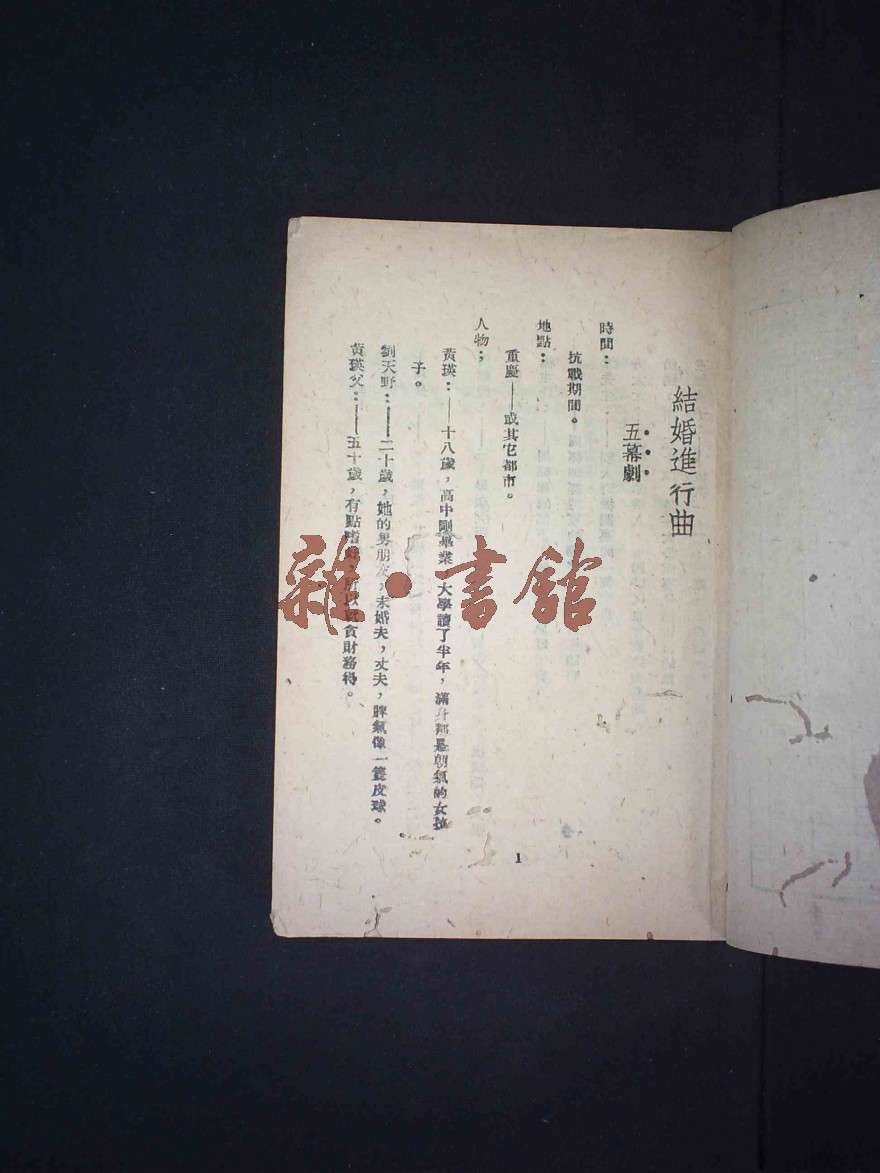 結婚進行曲
五幕劇
時間：
抗戰期間。
地點：
重慶——或其它都市。
人物：
黃瑛：——十八歲，高中剛畢業，大學讀了半年，滿身都是朝氣的女孩
子。
劉天野：——二十歲，她的男朋友，未婚夫，丈夫，脾氣像一隻皮球。
黃瑛父：——五十歲，有點嗜好，所以貪財務得。
1
雜·書館